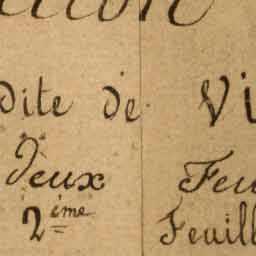 dite de Vi
Deux Feu
2ème Feuill